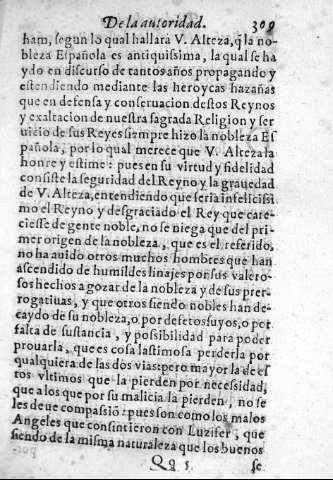 De la autoridad. 309
ham, segun lo qual hallarà V. Alteza, q̃ la no-
bleza Española es antiquissima, la qual se ha
ydo en discurso de tantos años propagando y
estendiendo mediante las heroycas hazañas
que en defensa y conseruacion destos Reynos
y exaltacion de nuestra sagrada Religion y ser
uicio de sus Reyes siempre hizo la nobleza Es
pañola, por lo qual merece que V. Alteza la
honre y estime: pues en su virtud y fidelidad
consiste la seguridad del Reyno y la grauedad
de V. Alteza, entendiendo que seria infelicissi
mo el Reyno y desgraciado el Rey que care-
ciesse de gente noble, no se niega que del pri
mer origen de la nobleza, que es el referido,
no ha auido otros muchos hombres que han
ascendido de humildes linajes por sus valero-
sos hechos a gozar de la nobleza y de sus prer-
rogatiuas, y que otros siendo nobles han de-
caydo de su nobleza, o por defetos suyos, o por
falta de sustancia, y possibilidad para poder
prouarla, que es cosa lastimosa perderla por
qualquiera de las dos vias: pero mayor la de es
tos vltimos que la pierden por necessidad,
que a los que por su malicia la pierden, no se
les deue compassiõ: pues son como los malos
Angeles que consintieron con Luzifer, que
siendo de la misma naturaleza que los buenos
Qq 5 se